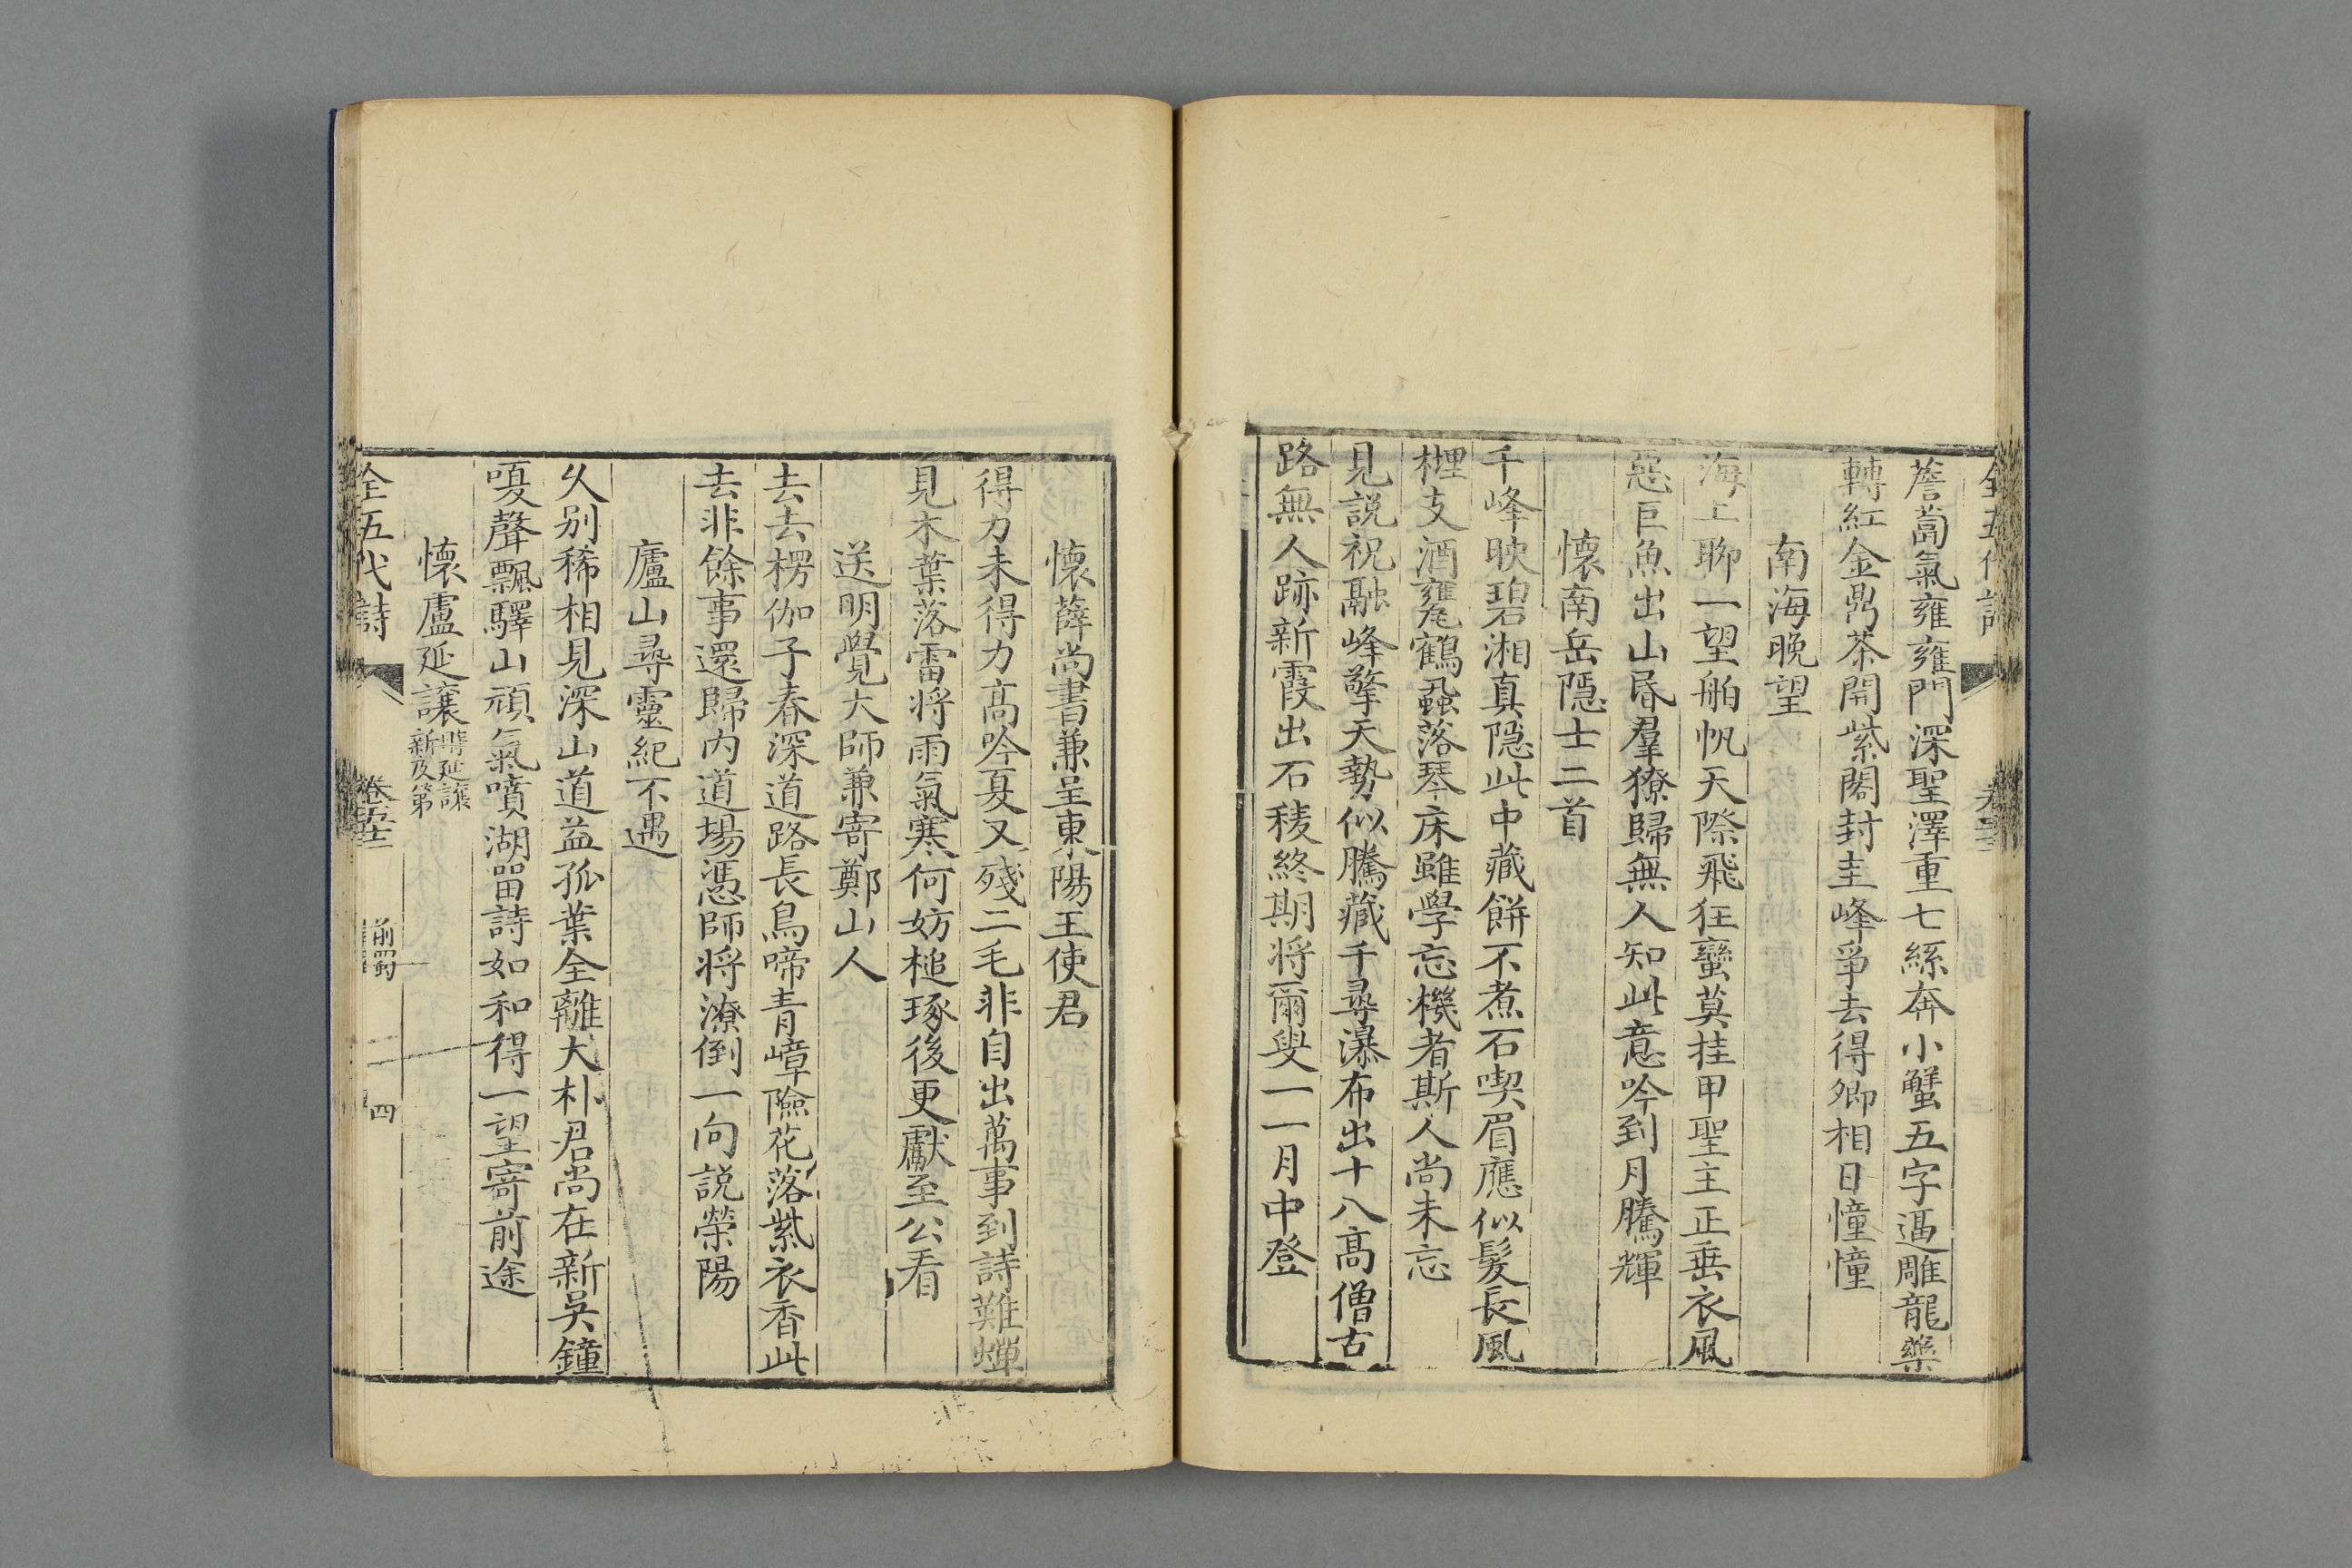 全五代詩
薝蔔氣雍雍門深聖澤重七絲奔小蟹五字逼雕龍藥
轉紅金鼎茶開紫閣封圭峰爭去得卿相日憧憧
南海晚望
海上聊一望舶帆天際飛狂蠻莫挂甲聖主正垂衣風
惡巨魚出山昏羣獠歸無人知此意吟到月騰輝
懷南岳隱士二首
千峰映碧湘真隱此中藏餅不煮石喫眉應似髮長風
梩支酒甕鶴蝨落琴床雖學忘機者斯人尚未忘
見說祝融峰擎天勢似騰藏千尋瀑布出十八高僧古
路無人跡新霞出石稜終期將爾叟一一月中登
懷薛尚書兼呈東陽王使君
得力未得力高吟夏又殘二毛非自出萬事到詩難蟬
見木葉落雷將雨氣寒何妨槌琢後更獻至公看
送明覺大師兼寄鄭山人
去去楞伽子春深道路長鳥啼青嶂險花落紫衣香此
去非餘事還歸內道場憑師將潦倒一向說榮陽
廬山尋靈紀不遇
久別稀相見深山道益孤葉全離大朴君尚在新吳鐘
嗄聲飄驛山頑氣噴湖留詩如和得一望寄前途
懷盧延讓 時延讓新及第
全五代詩 卷五十三 前蜀 四